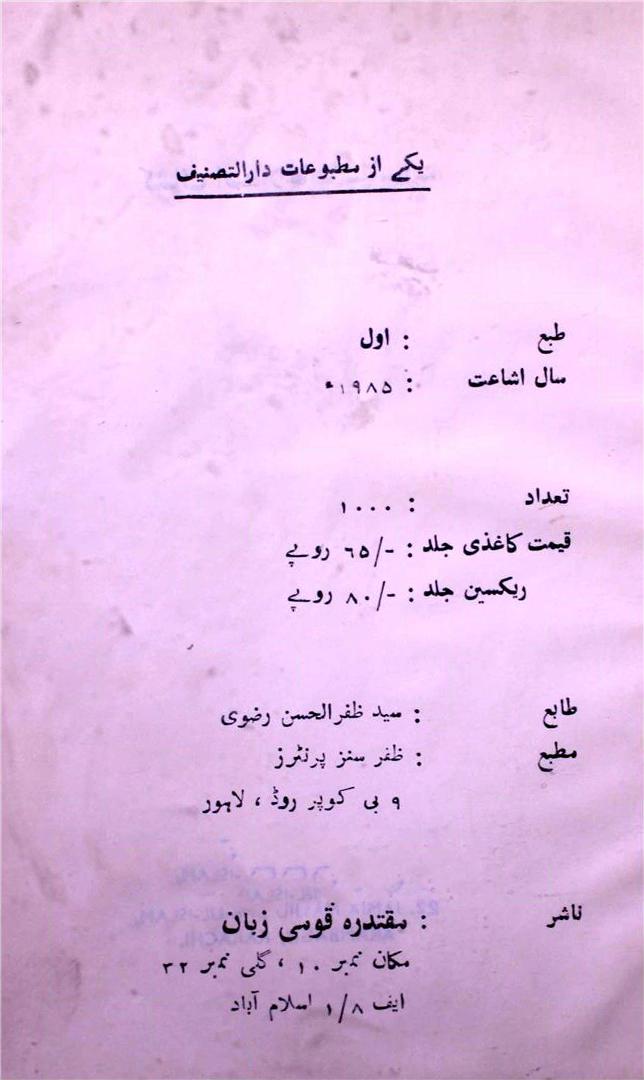 یکے از مطبوعات دارالتصنیف
طبع : اول
سال اشاعت : ۱۹۸۵ء
تعداد : ۱۰۰۰
قیمت کاغذی جلد : -/۶۵ روپے
ریکسین جلد : -/۸۰ روپے
طابع : سید ظفرالحسن رضوی
مطبع : ظفر سنز پرنٹرز
۹ بی کوپر روڈ ، لاہور
ناشر : مقتدرہ قومی زبان
مکان نمبر ۱۰ ، گلی نمبر ۳۲
ایف ۸/۱ اسلام آباد